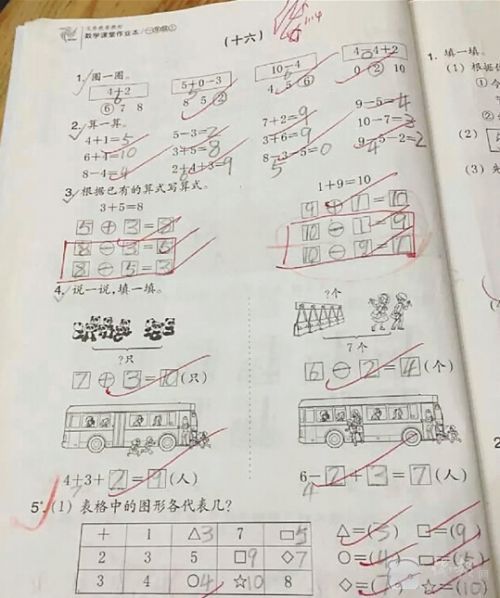 义务教育教材
数学课堂作业本
(十六)
1. 圈一圈。
4+2 5+0-3 10-4 4-4+2
6 5
⑥ 7 8 8 5 ② 4 5 ⑥ 0 ② 10
2. 算一算。
4+1=5 5-3=2 7+2=9 9-5=4
6+4=10 3+5=8 3+6=9 10-7=3
8-4=4 2+4+3=9 8-3-5=0 9-5-2=2
6 5 4
3. 根据已有的算式写算式。
3+5=8 1+9=10
5+3=8 9+1=10
8-3=5 10-1=9
8-5=3 10-9=1
4. 说一说,填一填。
?个
?只 7个
7+3=10(只) 6-2=4(个)
4+3+2=9(人) 6-2+3=7(人)
7 4
5.(1) 表格中的图形各代表几?
+ 1 △3 7 □5
2 3 5 □9 ◇7
3 4 ○4 ☆10 8
△=(3) □=(9)
○=(4) □=(5)
◇=(7) ☆=(10)
1. 填一填。
(1) 根据
①
②
(2) 5
(3)